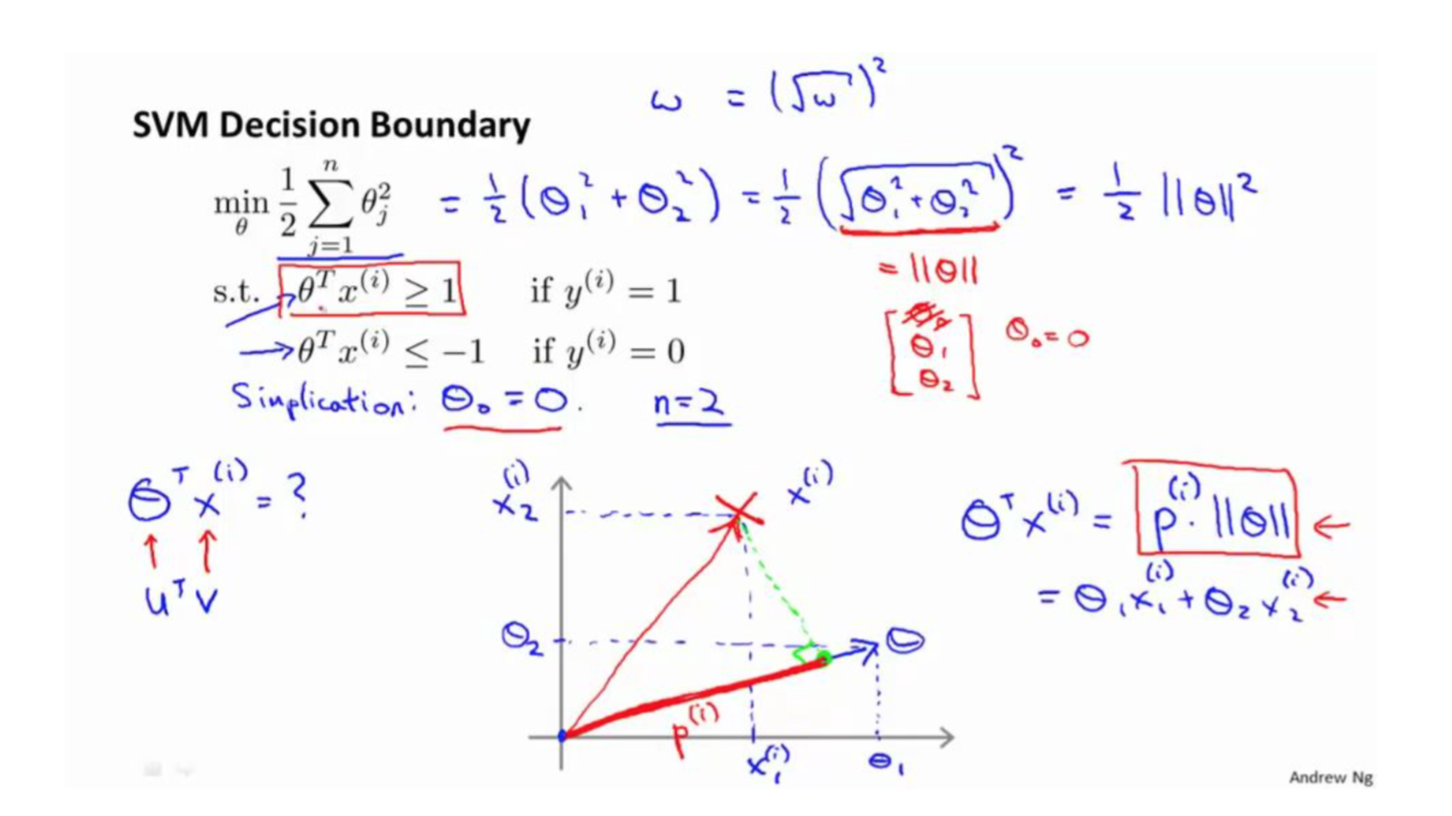 ω = (√ω)²
SVM Decision Boundary
min_θ 1/2 ∑_{j=1}^{n} θ_j² = 1/2 (θ₁² + θ₂²) = 1/2 (√(θ₁² + θ₂²))² = 1/2 ||θ||²
= ||θ||
s.t. θ^T x^(i) ≥ 1 if y^(i) = 1
θ^T x^(i) ≤ −1 if y^(i) = 0
[θ₀ θ₁ θ₂] θ₀ = 0
Simplication: θ₀ = 0. n=2
θ^T x^(i) = ?
u^T v
x₂^(i)
x^(i)
θ₂
θ
p^(i)
x₁^(i)
θ₁
θ^T x^(i) = p^(i) · ||θ|| ←
= θ₁ x₁^(i) + θ₂ x₂^(i) ←
Andrew Ng